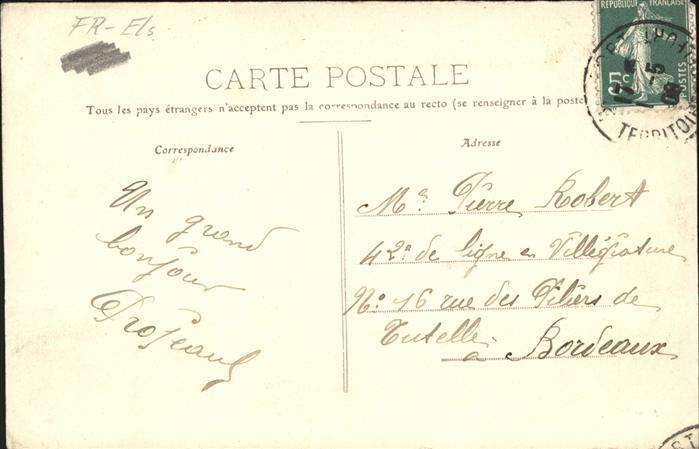 FR-Els
RÉPUBLIQUE FRANÇAISE
5 c
POSTES
TERRITOI
CARTE POSTALE
Tous les pays étrangers n'acceptent pas la correspondance au recto (se renseigner à la poste
Correspondance
Un grand
bonjour
Adresse
Mr Pierre Robert
42e de ligne en Villégiature
No 16 rue des Piliers de
Tutelle
à Bordeaux